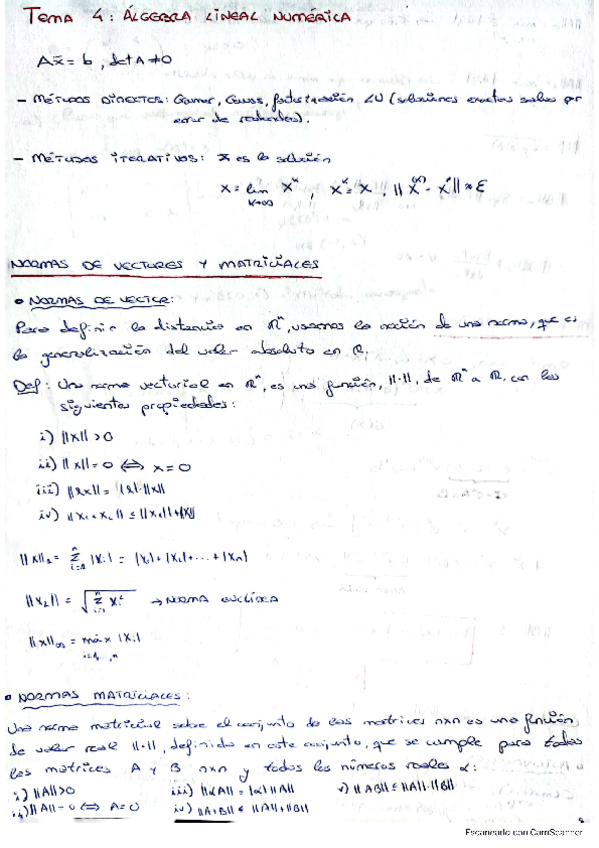 Tema 4: ÁLGEBRA LINEAL NUMÉRICA
Ax̄ = b, det A ≠ 0
- MÉTODOS DIRECTOS: Gauss, factorización LU (soluciones exactas salvo por
error de redondeo).
- MÉTODOS ITERATIVOS: x̄ es la solución
x = lim x^k, x^k ≈ x, ||x^(k) - x^*|| ≈ ε
k→∞
NORMAS DE VECTORES Y MATRICIALES
• NORMAS DE VECTOR:
Para definir la distancia en ℝⁿ, usamos la noción de una norma, que es
la generalización del valor absoluto en ℝ.
Def: Una norma vectorial en ℝⁿ, es una función, ||·||, de ℝⁿ a ℝ, con las
siguientes propiedades:
i) ||x|| > 0
ii) ||x|| = 0 ⇔ x = 0
iii) ||αx|| = |α|·||x||
iv) ||x₁ + x₂|| ≤ ||x₁|| + ||x||
||x||₂ = Σ |xᵢ| = |x₁| + |x₂| + ... + |xₙ|
||x₂|| = √Σ xᵢ² → NORMA EUCLÍDEA
||x||∞ = máx |xᵢ|
i=1,..,n
• NORMAS MATRICIALES:
Una norma matricial sobre el conjunto de las matrices nxn es una función
de valor real ||·||, definida en este conjunto, que se cumple para todas
las matrices A y B nxn y todos los números reales α:
i) ||A|| > 0 iii) ||αA|| = |α| ||A|| v) ||AB|| ≤ ||A||·||B||
ii) ||A|| = 0 ⇔ A = 0 iv) ||A+B|| ≤ ||A|| + ||B||
Escaneado con CamScanner